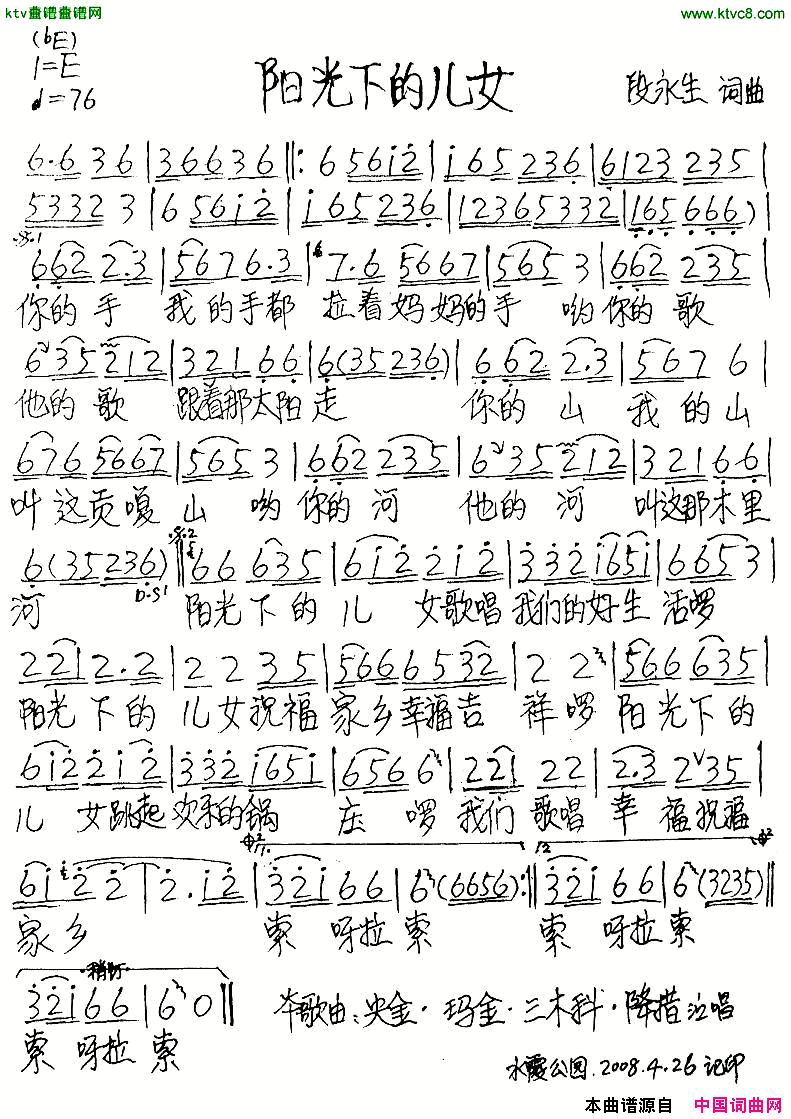 ktv歌谱简谱网 www.ktvc8.com
(bE)
1=E
♩=76
阳光下的儿女
段永生 词曲
6·6 3 6 | 3 6 6 3 6 ‖: 6 5 6 i 2 | i 6 5 2 3 6 | 6 1 2 3 2 3 5 |
5 3 3 2 3 | 6 5 6 i 2 | i 6 5 2 3 6 | 1 2 3 6 5 3 3 2 | 1 6 5 6 6 6 )
6 6 2 2·3 | 5 6 7 6·3 | 7·6 5 6 6 7 | 5 6 5 3 | 6 6 2 2 3 5 |
你的手 我的手都 拉着妈妈的手 哟你的歌
6 3 5 2 1 2 | 3 2 1 6 6 | 6 (3 5 2 3 6) | 6 6 2 2·3 | 5 6 7 6 |
他的歌 跟着那太阳走 你的山 我的山
6 7 6 5 6 6 7 | 5 6 5 3 | 6 6 2 2 3 5 | 6 3 5 2 1 2 | 3 2 1 6 6 |
叫这贡嘎山 哟你的河 他的河 叫这那木里
6 (3 5 2 3 6) ‖ 6 6 6 3 5 | 6 i 2 2 i 2 | 3 3 2 i 6 5 i | 6 6 5 3 |
D·S1
河 阳光下的儿 女歌唱我们的好生活啰
2 2 1 2·2 | 2 2 3 5 | 5 6 6 6 5 3 2 | 2 2 | 5 6 6 6 3 5 |
阳光下的儿女祝福家乡幸福吉祥啰 阳光下的
6 i 2 2 i 2 | 3 3 2 i 6 5 i | 6 5 6 6 | 2 2 1 2 2 | 2·3 2 3 5 |
儿 女跳起欢乐的锅 庄啰我们歌唱幸福祝福
6 i 2 2 | 2·i 2 | 3 2 i 6 6 | 6 (6 6 5 6) :‖ 3 2 i 6 6 | 6 (3 2 3 5) ‖
家乡 索呀拉索 索呀拉索
3 2 i 6 6 | 6 0 ‖
本歌由:央金·玛金·三木科·降措 演唱
索呀拉索
水霞公园.2008.4.26 记印
本曲谱源自 中国词曲网